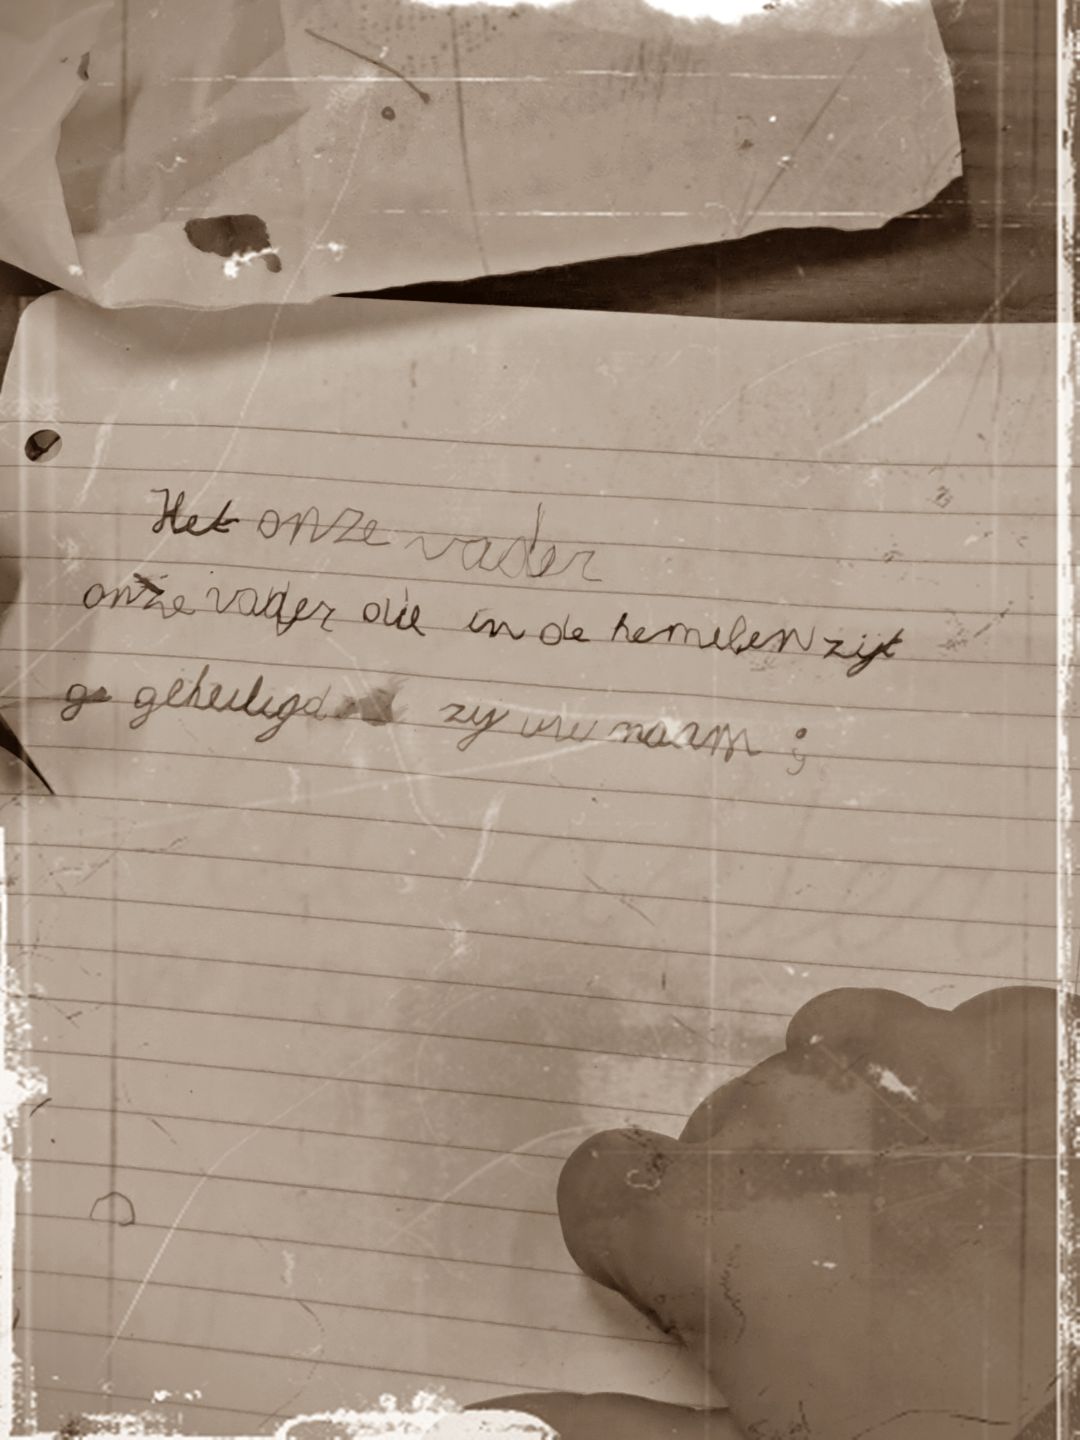 Het onze vader
onze vader die in de hemelen zijt
ge geheiligd zij uw naam ;